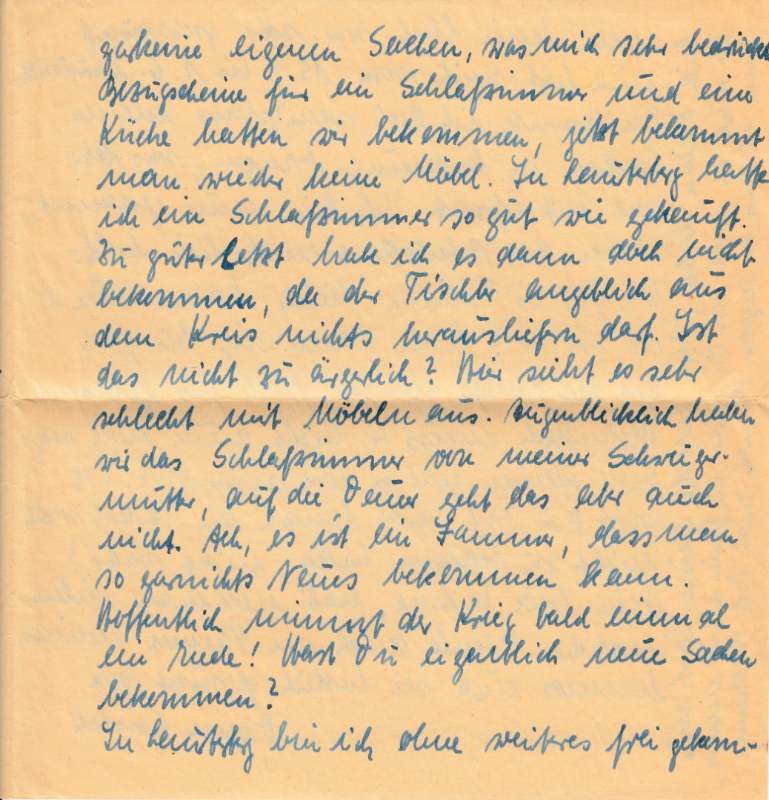 garkeine eigenen Sachen, was mich sehr bedrückt
Bezugscheine für ein Schlafzimmer und eine
Küche hatten wir bekommen, jetzt bekommt
man wieder keine Möbel. In Lauterberg hatte
ich ein Schlafzimmer so gut wie gekauft.
Zu guter Letzt habe ich es dann doch nicht
bekommen, da der Tischler angeblich aus
dem Kreis nichts herausliefern darf. Ist
das nicht zu ärgerlich? Hier sieht es sehr
schlecht mit Möbeln aus. Augenblicklich haben
wir das Schlafzimmer von meiner Schwieger-
mutter, auf die Dauer geht das aber auch
nicht. Ach, es ist ein Jammer, dass man
so garnichts Neues bekommen kann.
Hoffentlich nimmt der Krieg bald einmal
ein Ende! Hast Du eigentlich neue Sachen
bekommen?
In Lauterberg bin ich ohne weiteres frei gekom-